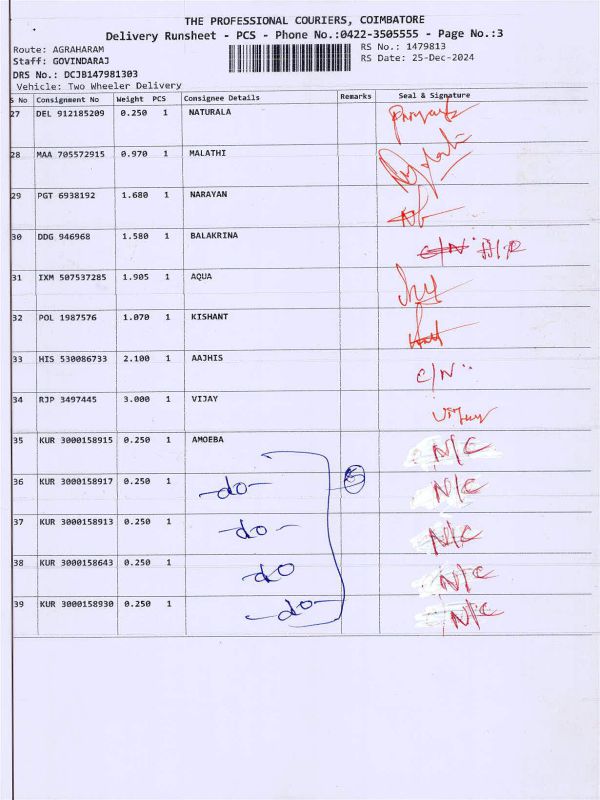 THE PROFESSIONAL COURIERS, COIMBATORE
Delivery Runsheet - PCS - Phone No.:0422-3505555 - Page No.:3
Route: AGRAHARAM RS No.: 1479813
Staff: GOVINDARAJ RS Date: 25-Dec-2024
DRS No.: DCJB147981303
Vehicle: Two Wheeler Delivery
S No Consignment No Weight PCS Consignee Details Remarks Seal & Signature
27 DEL 912185209 0.250 1 NATURALA
28 MAA 705572915 0.970 1 MALATHI
29 PGT 6938192 1.680 1 NARAYAN
30 DDG 946968 1.580 1 BALAKRINA C/N
31 IXM 507537285 1.905 1 AQUA
32 POL 1987576 1.070 1 KISHANT
33 HIS 530086733 2.100 1 AAJHIS C/N
34 RJP 3497445 3.000 1 VIJAY Vijay
35 KUR 3000158915 0.250 1 AMOEBA N/C
36 KUR 3000158917 0.250 1 -do- 5 N/C
37 KUR 3000158913 0.250 1 -do- N/C
38 KUR 3000158643 0.250 1 -do N/C
39 KUR 3000158930 0.250 1 -do- N/C